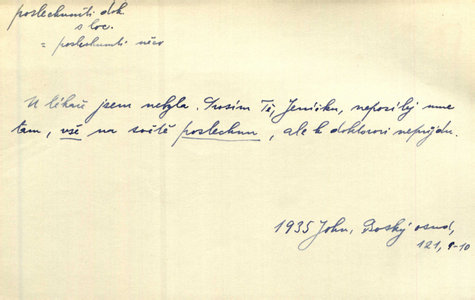 poslechnouti dok.
s loc.
= poslechnouti něco
U lékaře jsem nebyla. Prosím Tě, Jeníčku, neposílej mne
tam, vše na světě poslechnu, ale k doktorovi nepůjdu.
1935 John, Boský osud,
121, 9-10